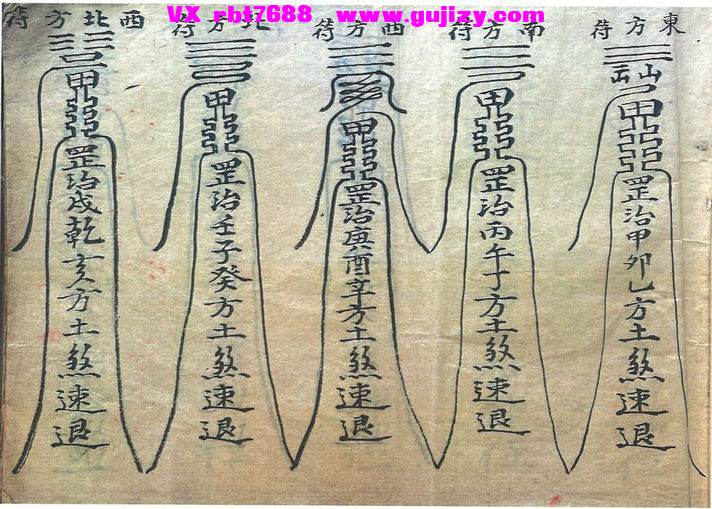 VX_rbt7688   www.gujizy.com
東方符
山 甲 罡治甲卯乙方土煞速退
南方符
甲 罡治丙午丁方土煞速退
西方符
甲 罡治庚酉辛方土煞速退
北方符
甲 罡治壬子癸方土煞速退
西北方符
甲 罡治戌乾亥方土煞速退